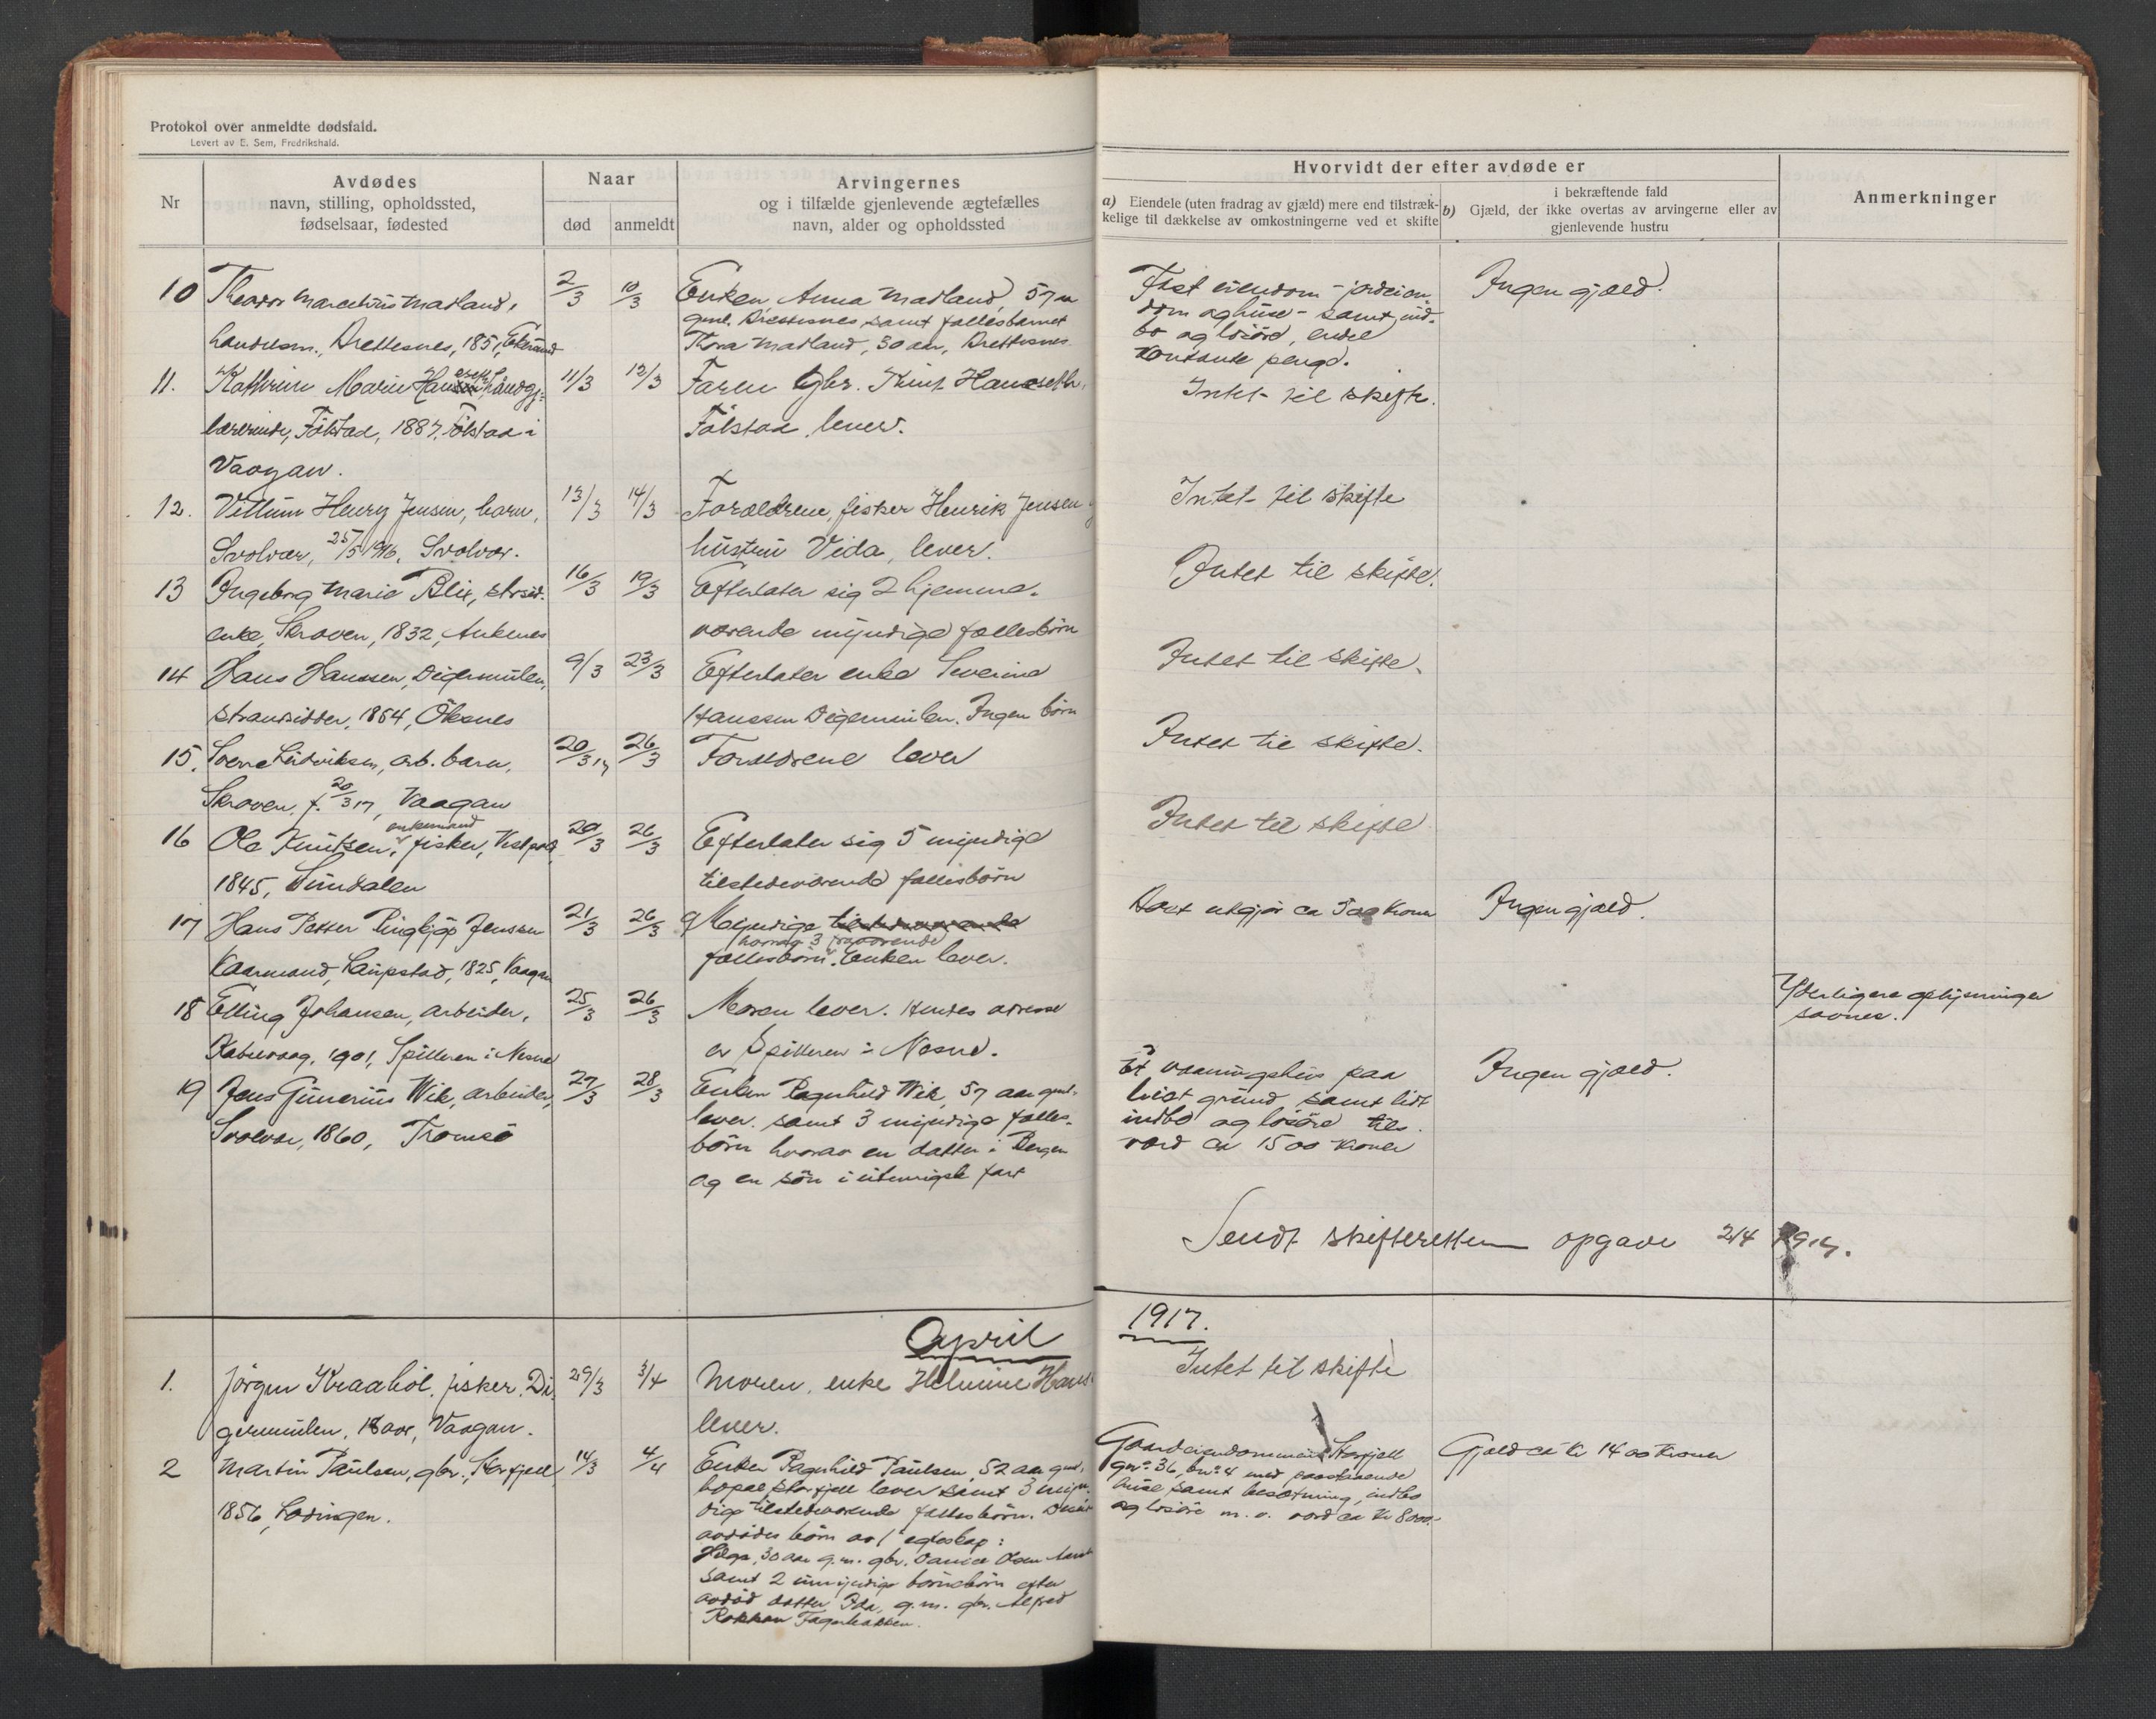 Protokol over anmeldte dødsfald.
Levert av E. Sem, Fredrikshald.
Nr
Avdødes
navn, stilling, opholdssted,
fødselsaar, fødested
Naar
død
anmeldt
Arvingernes
og i tilfælde gjenlevende ægtefælles
navn, alder og opholdssted
Hvorvidt der efter avdøde er
a) Eiendele (uten fradrag av gjæld) mere end tilstræk-
kelige til dækkelse av omkostningerne ved et skifte
i bekræftende fald
b) Gjæld, der ikke overtas av arvingerne eller av
gjenlevende hustru
Anmerkninger
10 Theodor Marcelius Madland, 2/3 10/3 Enken Anna Madland 57 aa
Fast eiendom - jordeien-
Ingen gjæld.
gml. Brettesnes samt fællesbarnet
dom og huse - samt ind-
handelsm., Brettesnes, 1851, Ekersund
Thora Madland, 30 aar, Brettesnes
bo og løsøre, endel
kontante penge.
11. Kathrine Marie Hanseth, haandgj- 11/3 12/3 Faren gbr. Knut Hanseth,
Intet til skifte.
lærerinde, Følstad, 1887, Følstad i
Følstad, lever.
Vaagan.
12. Villum Henry Jensen, barn, 13/3 14/3 Forældrene, fisker Henrik Jensen
Intet til skifte
Svolvær, 25/5 1916, Svolvær.
hustru Vida, lever.
13 Ingeborg Marie Blix, strsid. 16/3 19/3 Efterlater sig 2 hjemme-
Intet til skifte.
enke, Skroven, 1832, Ankenes
værende myndige fællesbørn
14 Hans Hanssen, Digermulen, 9/3 23/3 Efterlater enke Severine
Intet til skifte.
strandsidder, 1864, Øksnes
Hanssen Digermulen. Ingen børn
15. Sverre Ludviksen, arb. barn, 20/3 17 26/3 Forældrene lever
Intet til skifte.
Skroven, f. 20/3 17, Vaagan
enkemand
16 Ole Knutsen, fisker, Vestpold, 20/3 26/3 Efterlater sig 5 myndige
Intet til skifte
1845, Sundalen
tilstedeværende fællesbørn
17 Hans Petter Ringkjøp Jenssen 21/3 26/3 9 Myndige tilstedeværende
Boet utgjør ca 500 kroner
Ingen gjæld.
hvorav 3 fraværende
Kaarmand, Laupstad, 1825, Vaagan
fællesbørn. Enken lever.
18 Elling Johansen, arbeider, 25/3 26/3 Moren lever. Hendes adresse
Yderligere oplysninger
savnes.
Kabelvaag, 1901, Spilleren i Nesne
er Spilleren i Nesne.
19 Jens Gunerius Wik, arbeider, 27/3 28/3 Enken Ragnhild Wik, 57 aar gml.
Et vaaningshus paa
Ingen gjæld.
Svolvær, 1860, Tromsø
lever. samt 3 myndige fælles-
leiet grund samt lidt
indbo og løsøre tils.
børn hvorav en datter i Bergen
værd ca 1500 kroner
og en søn i utenrigsk fart
Sendt skifteretten opgave 2/4 1917.
April
1917.
1. Jørgen Kraahol, fisker, Di- 29/3 3/4 Moren, enke Helmine Hans
Intet til skifte
germulen, 18 aar, Vaagan.
lever.
2 Martin Paulsen, gbr., Storfjell, 14/3 4/4 Enken Ragnhild Paulsen, 52 aar gml.
Gaardeiendommen Storfjell
Gjæld ca kr 1400 kroner
1856, Lødingen.
bopæl Storfjell lever samt 3 myn-
gno 36, bno 4 med paastaaende
dige tilstedeværende fællesbørn.
huse samt besætning, indbo
avdødes børn av 1 egteskap:
og løsøre m. v. værd ca kr 8000.
Helga, 30 aar g. m. gbr. Daniel Olsen
samt 2 umyndige børnebørn efter
avdød datter Ida, g. m. gbr. Alfred
Rokkan Fagerbakken.